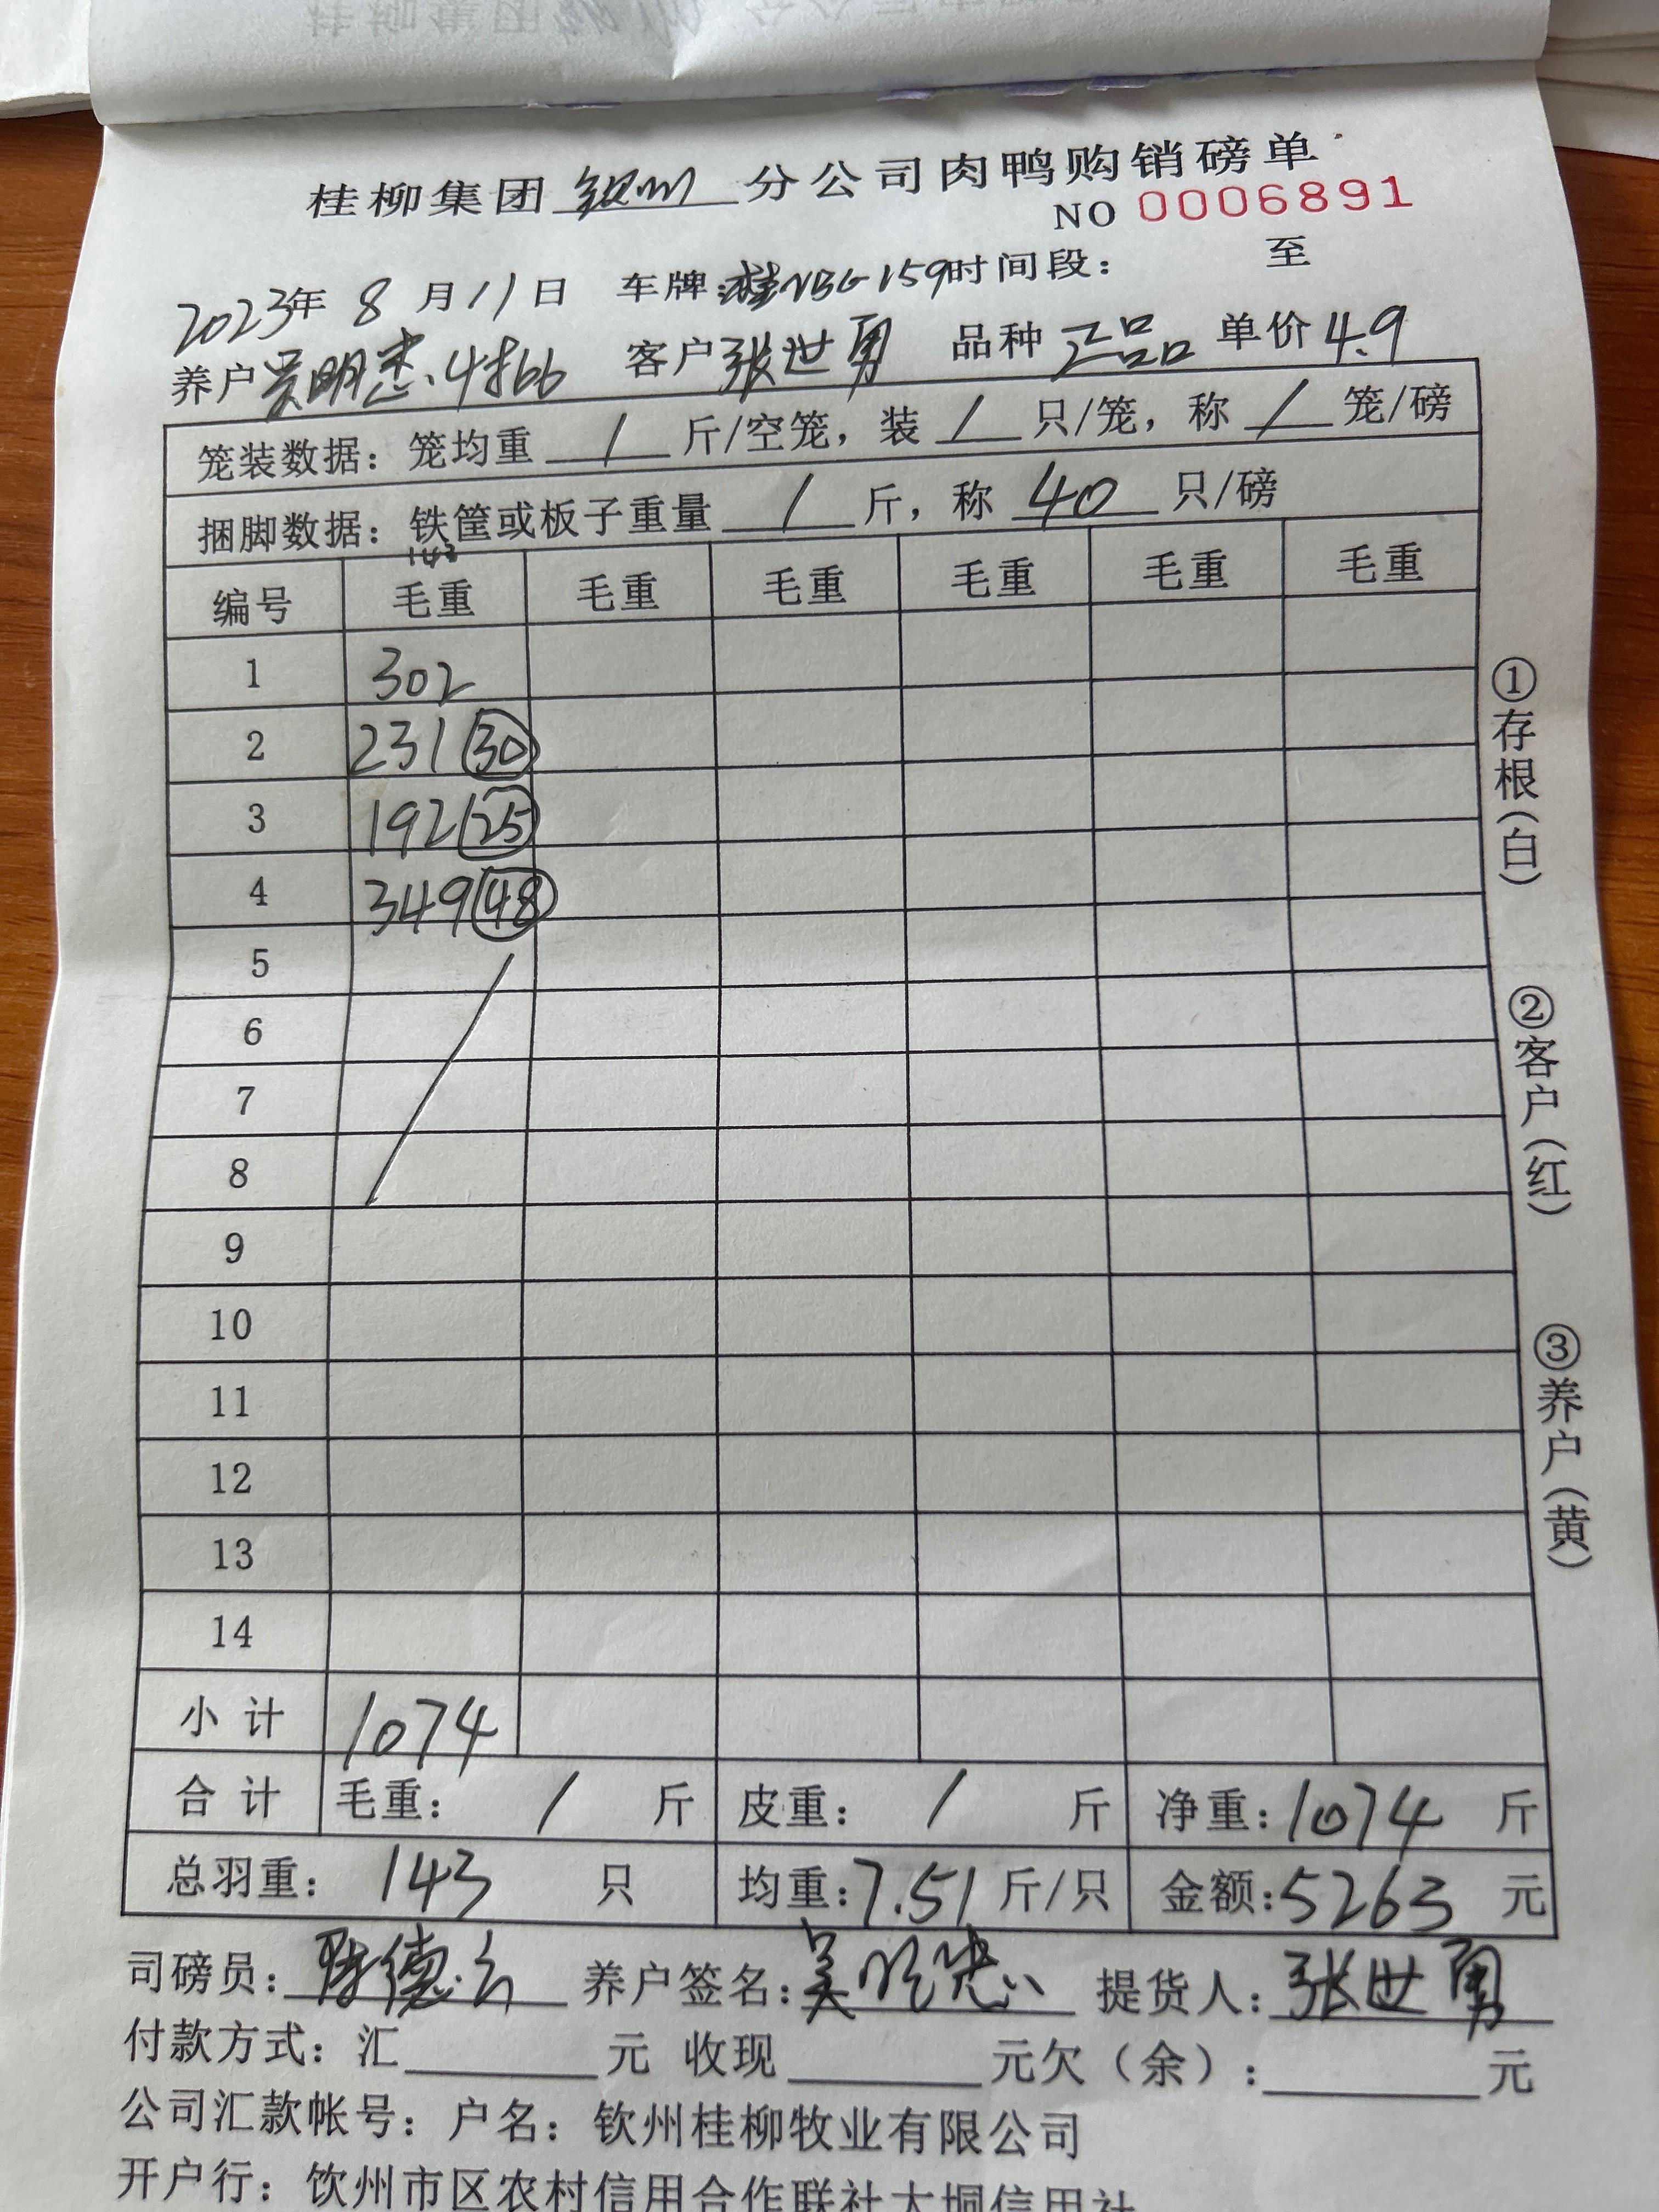 桂柳集团钦州分公司肉鸭购销磅单
NO 0006891
2023年 8 月 11 日 车牌:桂NBG159时间段: 至
养户吴明杰.4批66 客户张世勇 品种 正品 单价4.9
笼装数据: 笼均重 / 斤/空笼, 装 / 只/笼, 称 / 笼/磅
捆脚数据: 铁筐或板子重量 / 斤, 称 40 只/磅
143
编号 毛重 毛重 毛重 毛重 毛重 毛重
1 302
2 231 30
3 192 25
4 349 48
5
6
7
8
9
10
11
12
13
14
小计 1074
合计 毛重: / 斤 皮重: / 斤 净重:1074 斤
总羽重: 143 只 均重:7.51 斤/只 金额:5263 元
司磅员: 陈德云 养户签名:吴明杰 提货人:张世勇
付款方式: 汇 元 收现 元欠(余): 元
公司汇款帐号: 户名: 钦州桂柳牧业有限公司
开户行: 钦州市区农村信用合作联社大垌信用社
①存根(白)
②客户(红)
③养户(黄)